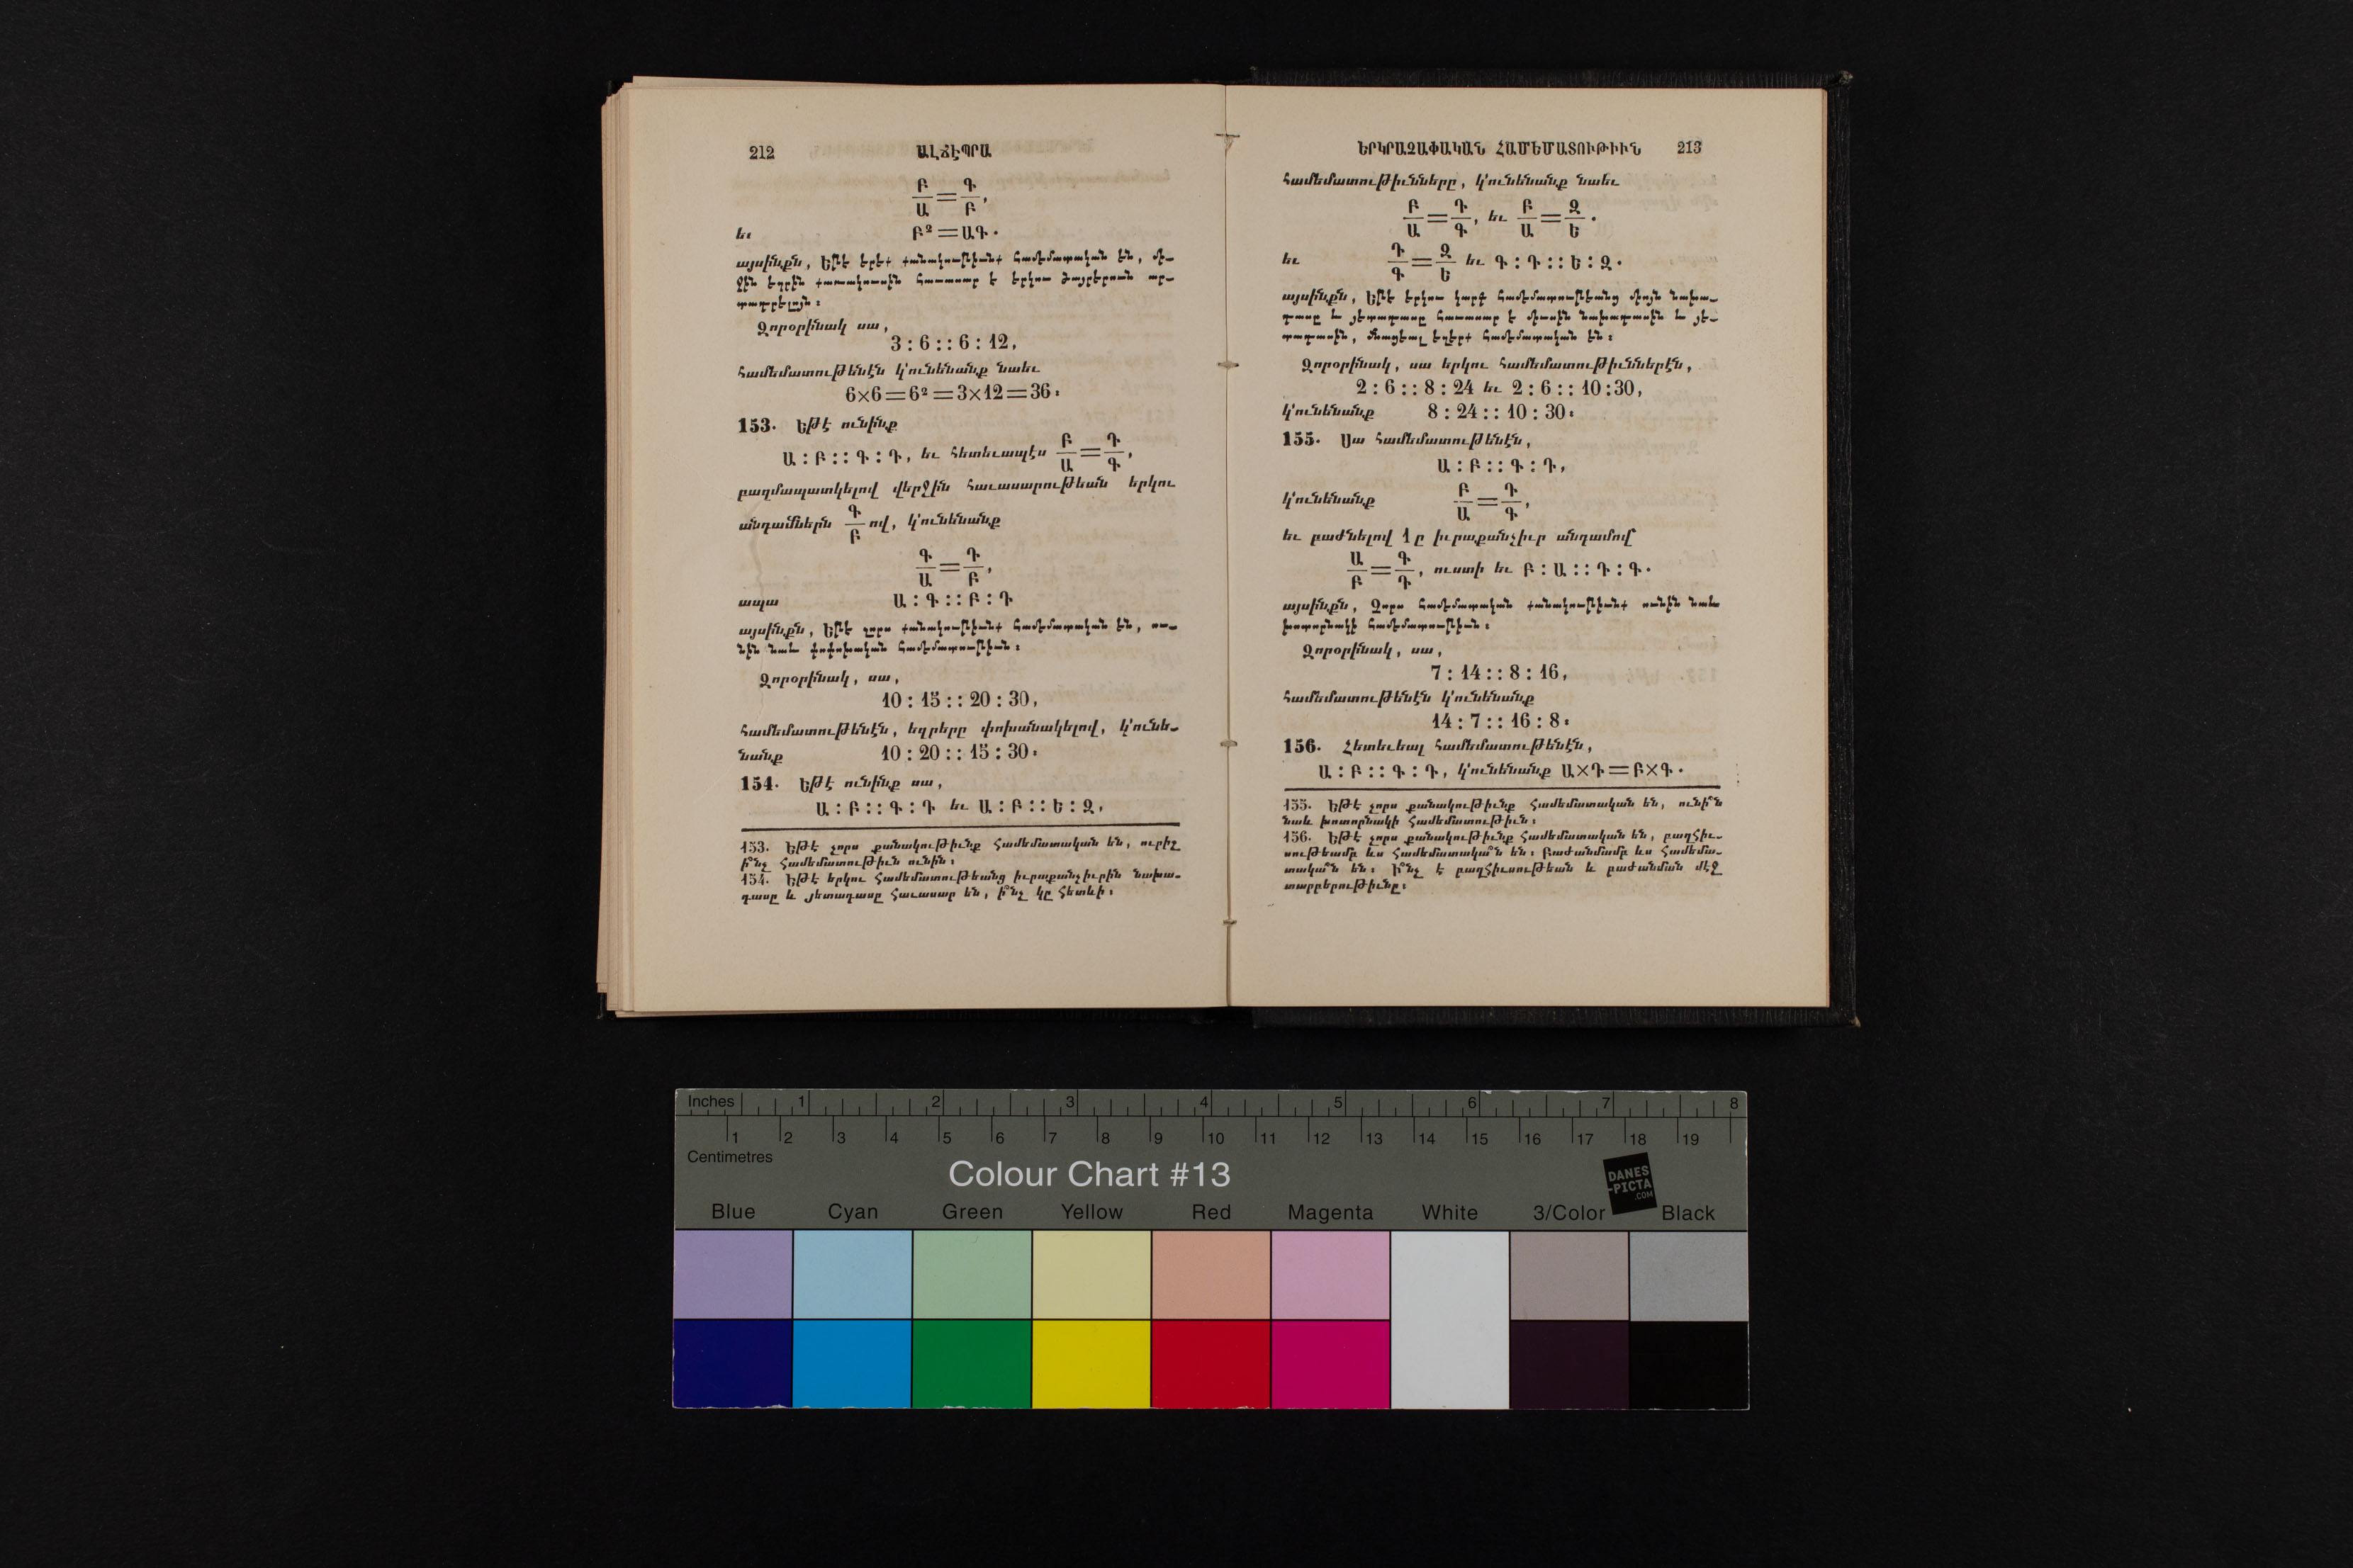 212 ԱԼՃԷՊՐԱ
Բ/Ա = Գ/Բ,
եւ Բ² = ԱԳ.
այսինքն, Եթէ երեք քանակութիւնք համեմատական են, մի-
ջին եզրին քառակուսին հաւասար է երկու ծայրերուն ար-
տադրելոյն։
Զորօրինակ սա,
3 : 6 :: 6 : 12,
համեմատութենէն կ'ունենանք նաեւ
6×6 = 6² = 3×12 = 36։
153. Եթէ ունինք
Ա : Բ :: Գ : Դ, եւ հետեւապէս Բ/Ա = Դ/Գ,
բազմապատկելով վերջին հաւասարութեան երկու
անդամներն Գ/Բ ով, կ'ունենանք
Գ/Ա = Դ/Բ,
ապա Ա : Գ :: Բ : Դ
այսինքն, Եթէ չորս քանակութիւնք համեմատական են, ու-
նին նաև փոփոխական համեմատութիւն։
Զորօրինակ, սա,
10 : 15 :: 20 : 30,
համեմատութենէն, եզրերը փոխանակելով, կ'ունե-
նանք 10 : 20 :: 15 : 30։
154. Եթէ ունինք սա,
Ա : Բ :: Գ : Դ եւ Ա : Բ :: Ե : Զ,
153. Եթէ չորս քանակութիւնք համեմատական են, ուրիշ
ի՞նչ համեմատութիւն ունին։
154. Եթէ երկու համեմատութեանց իւրաքանչիւրին նախա-
դասը և յետադասը հաւասար են, ի՞նչ կը հետևի։
ԵՐԿՐԱՉԱՓԱԿԱՆ ՀԱՄԵՄԱՏՈՒԹԻՒՆ 213
համեմատութիւնները, կ'ունենանք նաեւ
Բ/Ա = Դ/Գ, եւ Բ/Ա = Զ/Ե.
եւ Դ/Գ = Զ/Ե եւ Գ : Դ :: Ե : Զ.
այսինքն, Եթէ երկու կարգ համեմատութեանց միոյն նախա-
դասը և յետադասը հաւասար է միւսին նախադասին և յե-
տադասին, մնացեալ եզերք համեմատական են։
Զորօրինակ, սա երկու համեմատութիւններէն,
2 : 6 :: 8 : 24 եւ 2 : 6 :: 10 :30,
կ'ունենանք 8 : 24 :: 10 : 30։
155. Սա համեմատութենէն,
Ա : Բ :: Գ : Դ,
կ'ունենանք Բ/Ա = Դ/Գ,
եւ բաժնելով 1 ը իւրաքանչիւր անդամով
Ա/Բ = Գ/Դ, ուստի եւ Բ : Ա :: Դ : Գ.
այսինքն, Չորս համեմատական քանակութիւնք ունին նաև
խոտորնակի համեմատութիւն։
Զորօրինակ, սա,
7 : 14 :: 8 : 16,
համեմատութենէն կ'ունենանք
14 : 7 :: 16 : 8։
156. Հետեւեալ համեմատութենէն,
Ա : Բ :: Գ : Դ, կ'ունենանք Ա×Դ = Բ×Գ.
155. Եթէ չորս քանակութիւնք համեմատական են, ունի՞ն
նաև խոտորնակի համեմատութիւն։
156. Եթէ չորս քանակութիւնք համեմատական են, բաղհիւ-
սութեամբ ևս համեմատակա՞ն են։ Բաժանմամբ ևս համեմա-
տակա՞ն են։ Ի՞նչ է բաղհիւսութեան և բաժանման մէջ
տարբերութիւնը։
Inches 1 2 3 4 5 6 7 8
1 2 3 4 5 6 7 8 9 10 11 12 13 14 15 16 17 18 19
Centimetres
Colour Chart #13
DANES
-PICTA
.COM
Blue Cyan Green Yellow Red Magenta White 3/Color Black